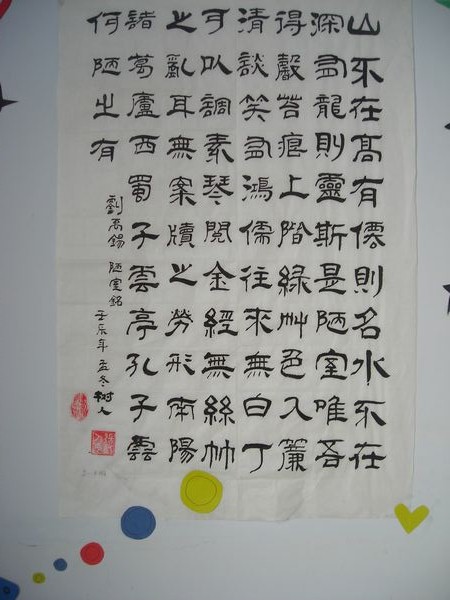 山不在髙有僊則名水不在
深有龍則靈斯是陋室唯吾
得馨苔痕上階綠艸色入簾
清談笑有鴻儒往來無白丁
可以調素琴閱金經無絲竹
之亂耳無案牘之勞形南陽
諸葛廬西蜀子雲亭孔子雲
何陋之有
劉禹錫 陋室銘 壬辰年孟冬樹人